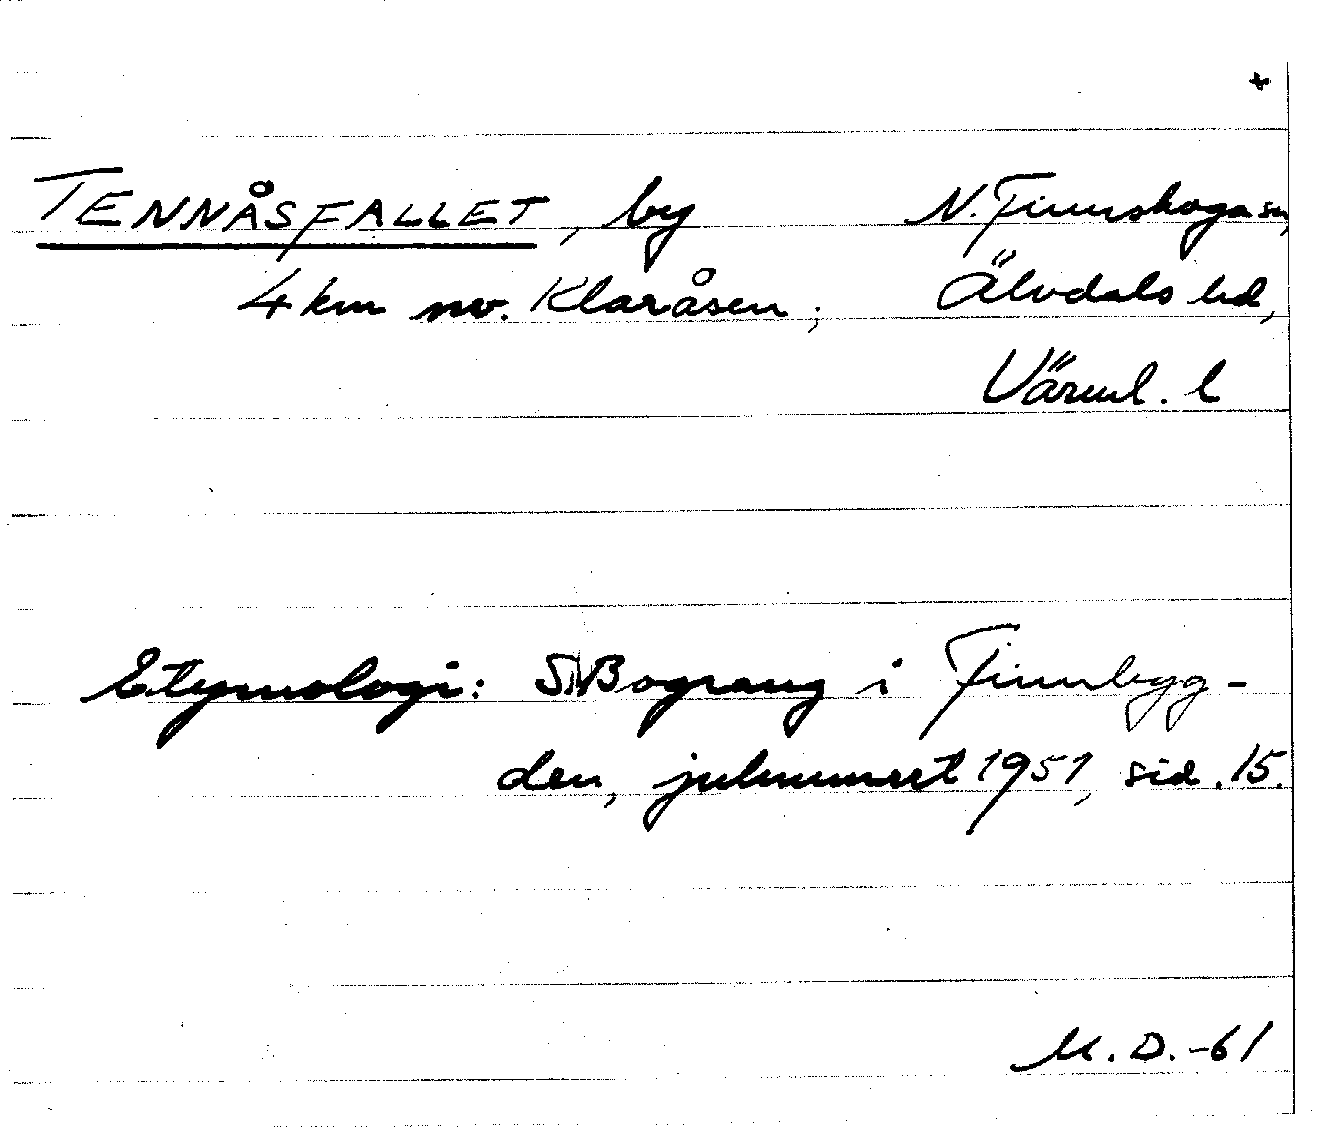 +
TENNÅSFALLET, by N. Finnskoga sn,
4 km nv. Klaråsen; Älvdals hd,
Värml. l
Etymologi: Bograng i Finnbyg-
den, julnumret 1951, sid. 15.
M. D. -61